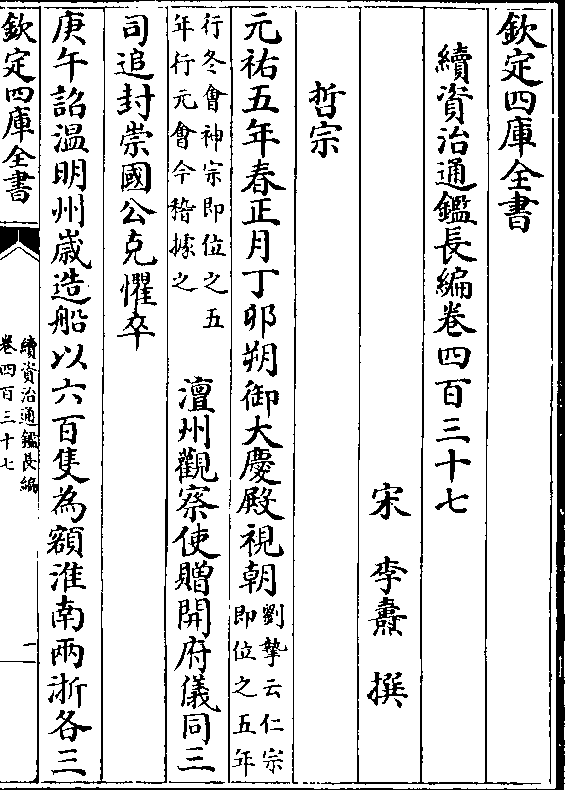 欽定四庫全書
續資治通鑑長編卷四百三十七
宋 李燾 撰
哲宗
元祐五年春正月丁卯朔御大慶殿視朝
劉摯云仁宗
即位之五年
行冬㑹神宗即位之五
年行元㑹今稽據之
澶州觀察使贈開府儀同三
司追封崇國公克懼卒
庚午詔温明州嵗造船以六百隻為額淮南兩浙各三
欽定四庫全書
續資治通鑑長編
卷四百三十七
一